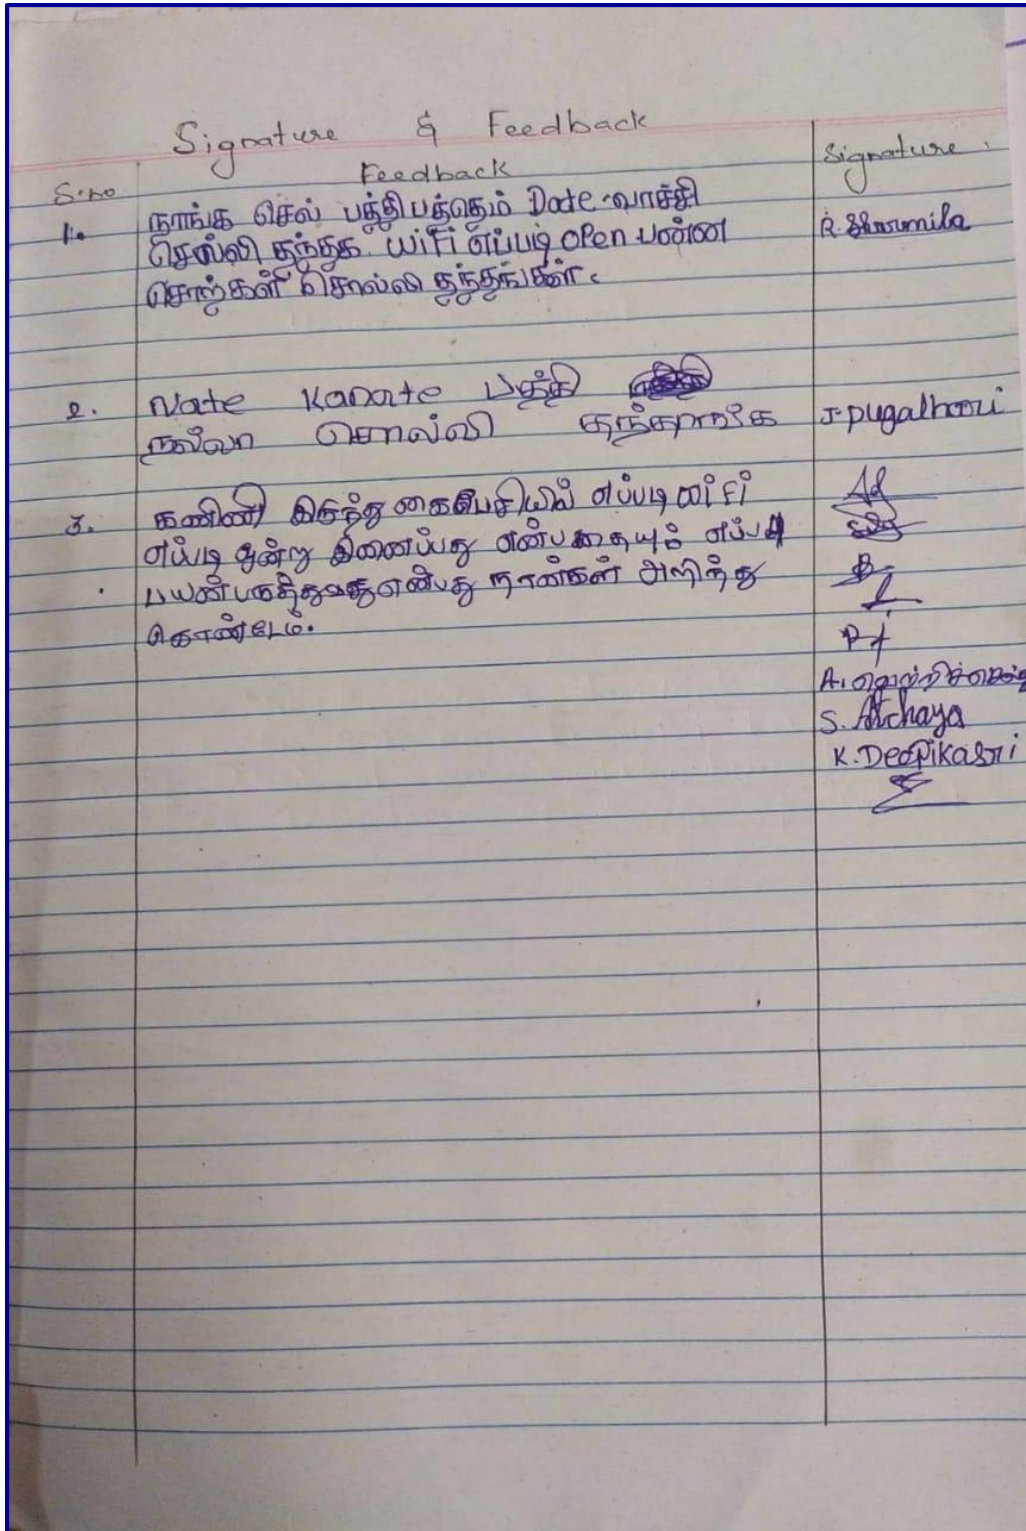 Signature & Feedback
S.no Feedback Signature
1. நாங்க செல் பத்தி பத்தெம் Date-வாச்சி R. Sharmila
சொல்லி தந்தக. WiFi எப்படி open பண்ண
சொற்கள் சொல்லி தந்தங்கள்.
2. Nate Kanate பத்தி
நல்லா சொல்லி தந்தாரங்க J. pugalhoori
3. கணினி இருந்து கைபேசியில் எப்படி wifi
எப்படி ஒன்று இனைப்பது என்பதையும் எப்படி
பயன்படுத்துவது என்பது நாண்கள் அறிந்து
கொண்டேம்.
A. வெற்றிச்செல்
S. Atchaya
K. Deepikasri